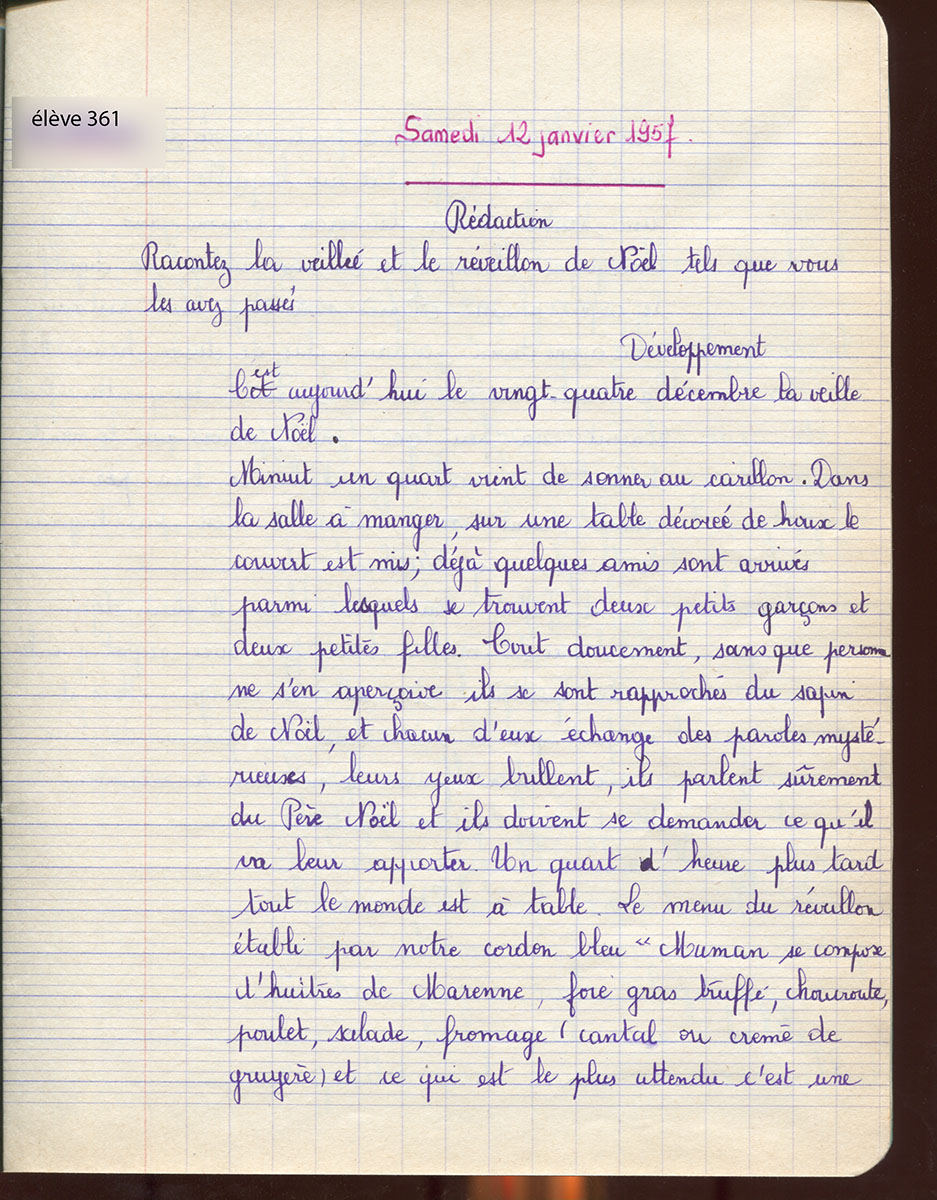 élève 361
Samedi 12 janvier 1957.
Rédaction
Racontez la veilleé et le réveillon de Noël tels que vous
les avez passés
Développement
est
C'est aujourd'hui le vingt-quatre décembre la veille
de Noël.
Minuit un quart vient de sonner au carillon. Dans
la salle à manger, sur une table décoreé de houx le
couvert est mis; déjà quelques amis sont arrivés
parmi lesquels se trouvent deux petits garçons et
deux petites filles. Tout doucement, sans que personne
ne s'en aperçoive ils se sont rapprochés du sapin
de Noël, et chacun d'eux échange des paroles mysté-
rieuses, leurs yeux brillent, ils parlent sûrement
du Père Noël et ils doivent se demander ce qu'il
va leur apporter. Un quart d'heure plus tard
tout le monde est à table. Le menu du réveillon
établi par notre cordon bleu "Maman se compose
d'huitres de Marenne, foie gras truffé, chouroute,
poulet, salade, fromage (cantal ou creme de
gruyère) et ce qui est le plus attendu c'est une